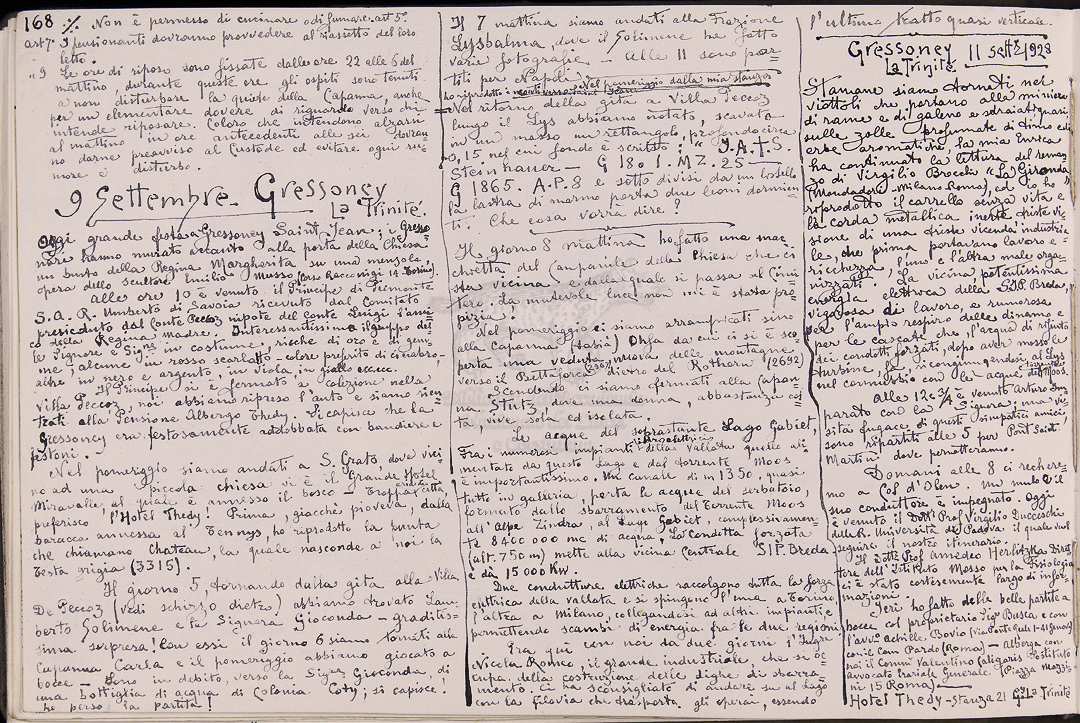 168 ·/. Non è permesso di cucinare o di fumare. art 5°
art 7° I pensionanti dovranno provvedere al riassetto del loro
letto.
" 9 Le ore di riposo sono fissate dalle ore 22 alle 6 del
mattino, durante queste ore gli ospiti sono tenuti
a non disturbare la quiete della Capanna, anche
per un elementare dovere di riguardo verso chi
intende riposare. Coloro che intendono alzarsi
al mattino in ore antecedenti alle sei dovran
no darne preavviso al Custode ed evitare ogni ru=
more e disturbo.
9 Settembre - Gressoney
La Trinité.
Oggi grande festa a Gressoney Saint Jean; i Gresso
nare hanno murato accanto alla porta della Chiesa
un busto della Regina Margherita su una mensola,
opera dello scultore Emilio Musso (corso Racconigi 14 Torino).
Alle ore 10 è venuto il Principe di Piemonte
S.A.R. Umberto di Savoia ricevuto dal Comitato
presieduto dal Conte Peccoz nipote del conte Luigi l'ami
co della Regina Madre. Interessantissimo il gruppo del=
le Signore e Sigre in costume, ricche di oro e di gem=
me, alcune in rosso scarlatto - colore preferito di Ginabro -
altre in nero e argento, in viola, in giallo ecc. ecc.
Il Principe si è fermato a colazione nella
Villa Peccoz, noi abbiamo ripreso l'auto e siamo rien=
trati alla Pensione Albergo Thedy. Si capisce che la
Gressoney era festosamente addobbata con bandiere e
festoni.
Nel pomeriggio siamo andati a S. Grato, dove vici=
no ad una piccola chiesa vi è il Grande Hotel
Miravalle, al quale è annesso il bosco - Troppa città,
preferisco l'Hotel Thedy! Prima, giacchè pioveva, dalla
baracca annessa al Tennys, ho riprodotto la punta
che chiamano Chateau, la quale nasconde a noi la
Testa grigia (3315).
Il giorno 5, tornando dalla gita alla Villa
De Peccoz (vedi schizzo dietro) abbiamo trovato Lam=
berto Solimene e la Signora Gioconda - graditis=
sima sorpresa! Con essi il giorno 6 siamo tornati alla
Capanna Carla e il pomeriggio abbiamo giocato a
bocce - Sono in debito, verso la Sigra Gioconda, di
una bottiglia di acqua di Colonia Coty; si capisce!
ho perso la partita!
Il 7 mattina siamo andati alla Frazione
Lysbalma, dove il Solimene ha fatto
varie fotografie - Alle 11 sono par=
titi per Napoli. Nel pomeriggio dalla mia stanza
ho riprodotti i
Nel ritorno della gita a Villa Peccoz
lungo il Lys abbiamo notato, scavato
in un masso un rettangolo, profondo circa
0,15, nel cui fondo è scritto: " J.A.+S.
Steinhauer - G 1801. MZ. 25 -
G 1865. A.P.8 e sotto divisi da un
la lastra di marmo porta due leoni dormien
ti. Che cosa vorrà dire?
Il giorno 8 mattina ho fatto una mac=
chietta del Campanile della Chiesa che ci
sta vicina e dalla quale si passa al Cimi
tero; la mutevole luce non mi è stata pro=
pizia.
Nel pomeriggio ci siamo arrampicati sino
alla Capanna (Hasià) Ohfa da cui ci si è sco
perta una veduta nuova delle montagne
verso il Bettaforca (2967) dietro del Rothorn (2692)
Scendendo ci siamo fermati alla Capan=
na Stütz dove una donna, abbastanza col=
ta vive sola ed isolata.
Le acque del soprastante Lago Gabiet,
Fra i numerosi impianti idroelettrici della Vallata quello ali=
mentato da questo Lago e dal torrente Moos
è importantissimo. Un canale di m 1350, quasi
tutto in galleria, porta le acque del serbatoio,
formato dallo sbarramento del torrente Moos
all'alpe Zindra, al Lago Gabiet, complessivamen=
te 8400000 mc di acqua. La condotta forzata
(alt. 750 m) mette alla vicina Centrale SIP. Breda
e dà 15000 KW.
Due condutture elettriche raccolgono tutta la forza
elettrica della vallata e si spingono l'una a Torino,
l'altra a Milano, collegandosi ad altri impianti e
permettendo scambi di energia fra le due regioni.
Era qui con noi da due giorni l'Ingre
Nicola Romeo, il grande industriale, che si oc=
cupa della costruzione delle dighe di sbarra=
mento. Ci ha sconsigliato di andare su al Lago
con la filovia che trasporta gli operai, essendo
l'ultimo tratto quasi verticale.
Gressoney 11 Sette 1928
La Trinité.
Stamane siamo tornati nei
viottoli che portano alla miniera
di rame e di galena e sdraiati quasi
sulle zolle profumate di timo ed
erbe aromatiche, la mia Enrica
ha continuato la lettura del roman
zo di Virgilio Brocchi "La Gironda
(Mondadori - Milano Roma), ed io ho
riprodotto il carrello senza vita e
la corda metallica inerte, triste vi=
sione di una triste vicenda industria
le, che prima portavano lavoro e
ricchezza, l'uno e l'altra male orga=
nizzati. La vicina potentissima
energia elettrica della SIP Breda,
vigorosa di lavoro, e rumorosa
per l'ampio respiro delle dinamo e
per le cascate che, l'acqua di rifiuto
dei condotti forzati, dopo aver mosso le
turbine, fa, ricongiungendosi al Lys
nel connubio con le acque del torrente Moos.
Alle 12 e 3/4 è venuto Arturo Im
parato con la Signora: una vi=
sita fugace di questi simpatici amici,
sono ripartiti alle 5 per Pont Saint
Martin dove pernotteranno.
Domani alle 8 ci rechere=
mo a Col d'Olen. Un mulo e il
suo conduttore è impegnato. Oggi
è venuto il Dott. Prof. Virgilio Ducceschi
della R. Università di Padova il quale vuol
seguire il nostro itinerario.
Il Dott. Prof. Amedeo Herlitzka Diret
tore dell'Istituto Mosso per la Fisiologia
ci è stato cortesemente largo di infor=
mazioni.
Ieri ho fatto delle belle partite a
bocce col proprietario Sigr Busca e con
l'avv. Achille Bovio (Via Ponte Reale 1-21 Genova)
con il Com. Pardo (Roma) - Alberga con
noi il Comm. Valentino Caligaris Sostituto
avvocato Erariale Generale (Piazza Mazzi=
ni 15 Roma) -
Hotel Thedy - Stanza 21 Gr. La Trinité